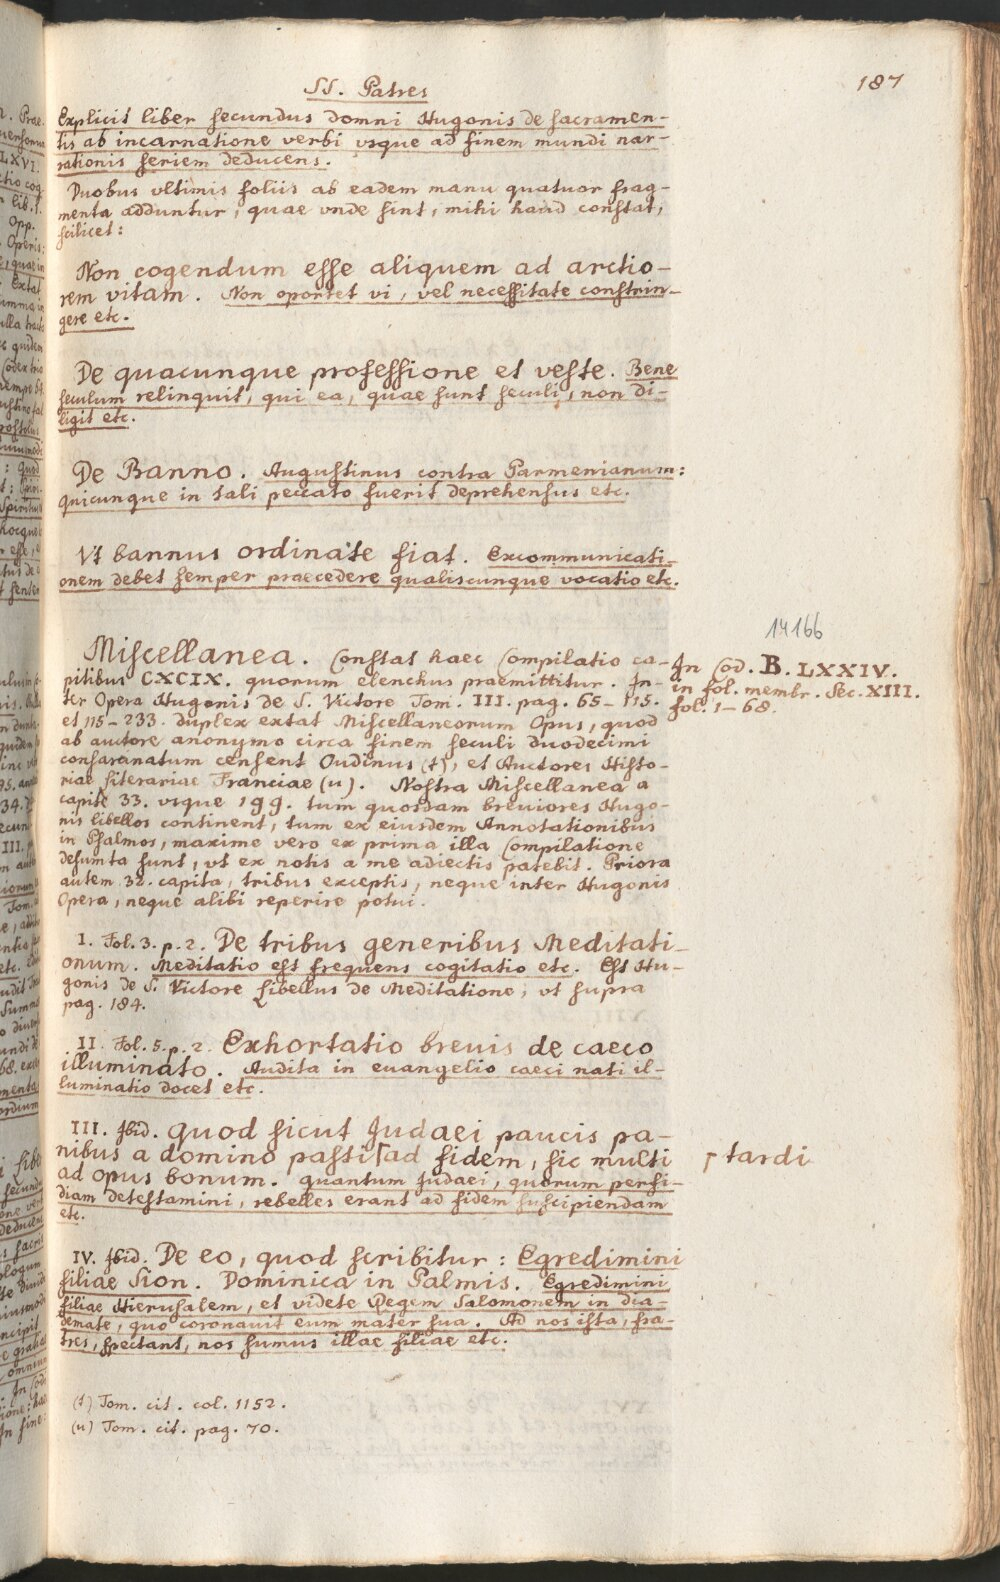 SS. Patres
187
Explicit liber secundus domni Hugonis de sacramen-
tis ab incarnatione verbi vsque ad finem mundi nar-
rationis seriem deducens.
Duobus vltimis foliis ab eadem manu quatuor frag-
menta adduntur, quae vnde sint, mihi haud constat,
scilicet:
Non cogendum esse aliquem ad arctio-
rem vitam. Non oportet vi, vel necessitate constrin-
gere etc.
De quacunque professione et veste. Bene
seculum relinquit, qui ea, quae sunt seculi, non di-
ligit etc.
De Banno. Augustinus contra Parmenianum:
Quicunque in tali peccato fuerit deprehensus etc.
Vt bannus ordinate fiat. Excommunicati-
onem debet semper praecedere qualiscunque vocatio etc.
14166
Miscellanea. Constat haec Compilatio ca-
pitibus CXCIX. quorum elenchus praemittitur. In-
ter Opera Hugonis de S. Victore Tom. III. pag. 65-115.
et 115-233. duplex extat Miscellaneorum Opus, quod
ab auctore anonymo circa finem seculi duodecimi
consarcinatum censent Oudinus (t), et Auctores Histo-
riae literariae Franciae (u). Nostra Miscellanea a
capite 33. vsque 199. tum quosdam breuiores Hugo-
nis libellos continent, tum ex eiusdem Annotationibus
in Psalmos, maxime vero ex prima illa Compilatione
desumta sunt, vt ex notis a me adiectis patebit. Priora
autem 32. capita, tribus exceptis, neque inter Hugonis
Opera, neque alibi reperire potui.
In Cod. B. LXXIV.
in fol. membr. Sec. XIII.
fol. 1-68.
I. Fol. 3. p. 2. De tribus generibus Meditati-
onum. Meditatio est frequens cogitatio etc. Est Hu-
gonis de S. Victore Libellus de Meditatione, vt supra
pag. 184.
II. Fol. 5. p. 2. Exhortatio breuis de caeco
illuminato. Audita in euangelio caeci nati il-
luminatio docet etc.
III. Ibid. Quod sicut Judaei paucis pa-
nibus a domino pasti⌈ad fidem, sic multi
ad opus bonum. Quantum Judaei, quorum perfi-
diam detestamini, rebelles erant ad fidem suscipiendam
etc.
⌈ tardi
IV. Ibid. De eo, quod scribitur: Egredimini
filiae Sion. Dominica in Palmis. Egredimini
filiae Hierusalem, et videte Regem Salomonem in dia-
demate, quo coronauit eum mater sua. Ad nos ista, fra-
tres, spectant, nos sumus illae filiae etc.
(t) Tom. cit. col. 1152.
(u) Tom. cit. pag. 70.